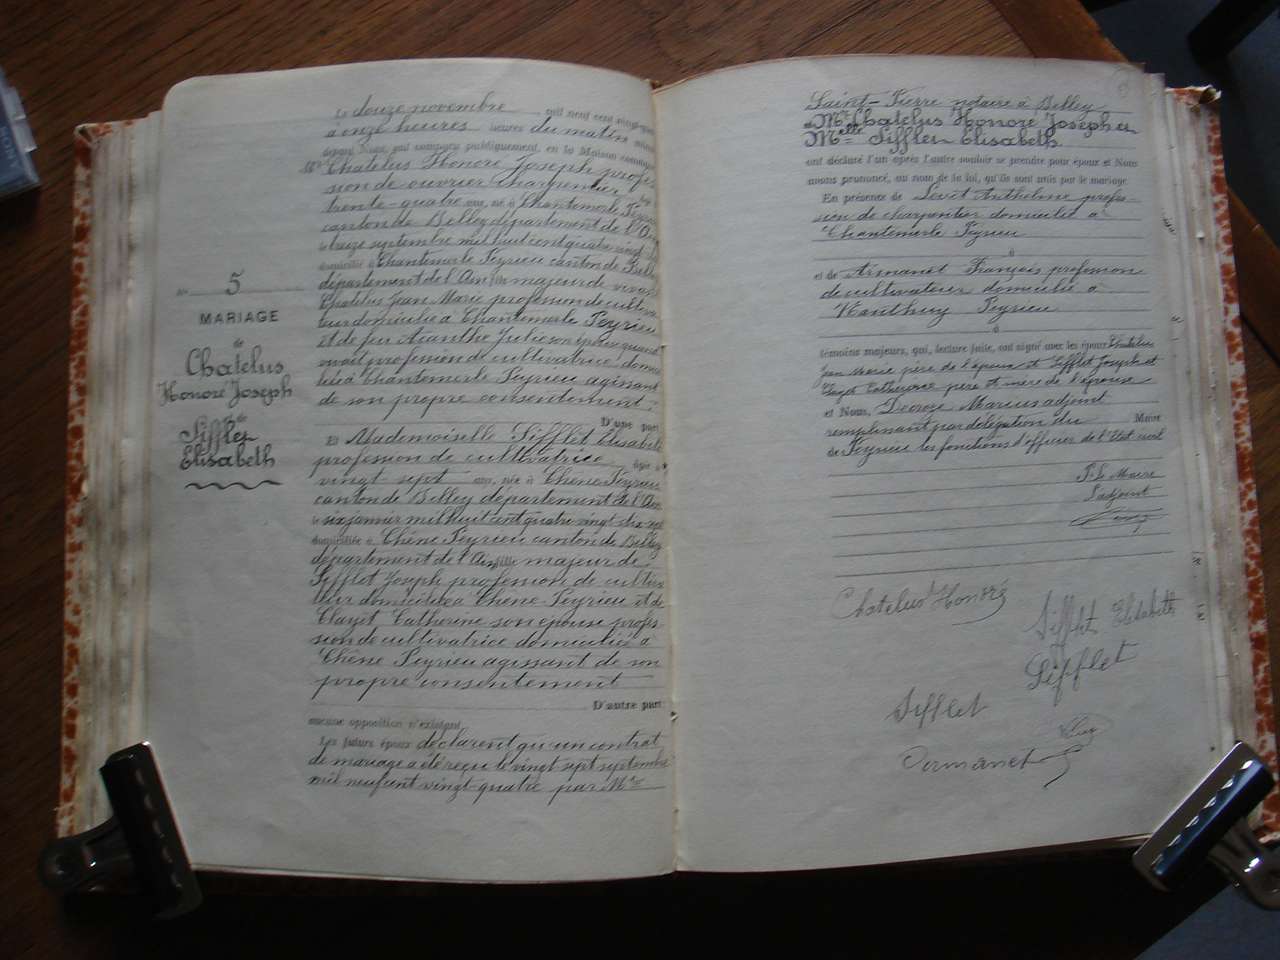 N° 5
MARIAGE
de
Chatelus
Honoré Joseph
& de
Sifflet
Elisabeth
Le douze novembre mil neuf cent vingt-quatre
à onze heures heures du matin
devant Nous, ont comparu publiquement, en la Maison commune
Mr Chatelus Honoré Joseph profes-
sion de ouvrier charpentier âgé
trente-quatre ans, né à Chantemerle Peyrieu
canton de Belley département de l'Ain
le septembre mil huit cent quatre vingt
domicilié à Chantemerle Peyrieu canton de Belley
département de l'Ain fils majeur de vivant
Chatelus Jean Marie profession de cultiva-
teur domicilié à Chantemerle Peyrieu
et de feu Julie son épouse quand
vivait profession de cultivatrice domi-
ciliée à Chantemerle Peyrieu agissant
de son propre consentement.
D'une part
Et Mademoiselle Sifflet Elisabeth
profession de cultivatrice âgée de
vingt-sept ans, née à Chêne Peyrieu
canton de Belley département de l'Ain
le six janvier mil huit cent quatre vingt dix sept
domiciliée à Chêne Peyrieu canton de Belley
département de l'Ain fille majeur de
Sifflet Joseph profession de cultiva-
teur domicilié à Chêne Peyrieu et de
Clayet Catherine son épouse profes-
sion de cultivatrice domiciliée à
Chêne Peyrieu agissant de son
propre consentement
D'autre part
aucune opposition n'existant.
Les futurs époux déclarent qu'un contrat
de mariage a été reçu le vingt sept septembre
mil neuf cent vingt-quatre par Me
Saint-Pierre notaire à Belley
Mr Chatelus Honoré Joseph et
Melle Sifflet Elisabeth
ont déclaré l'un après l'autre vouloir se prendre pour époux et Nous
avons prononcé, au nom de la loi, qu'ils sont unis par le mariage
En présence de Levet Anthelme profes-
sion de charpentier domicilié à
Chantemerle Peyrieu
et de Armanet François profession
de cultivateur domicilié à
Nanthuy Peyrieu
témoins majeurs, qui, lecture faite, ont signé avec les époux Chatelus
Jean Marie père de l'époux et Sifflet Joseph et
Clayet Catherine père et mère de l'épouse
et Nous, Decroze Marius adjoint
remplaçant par délégation du Maire
de Peyrieu les fonctions d'officier de l'Etat civil
P. Le Maire
L'adjoint
Chatelus Honoré
Sifflet Elisabeth
Sifflet
Sifflet
Armanet